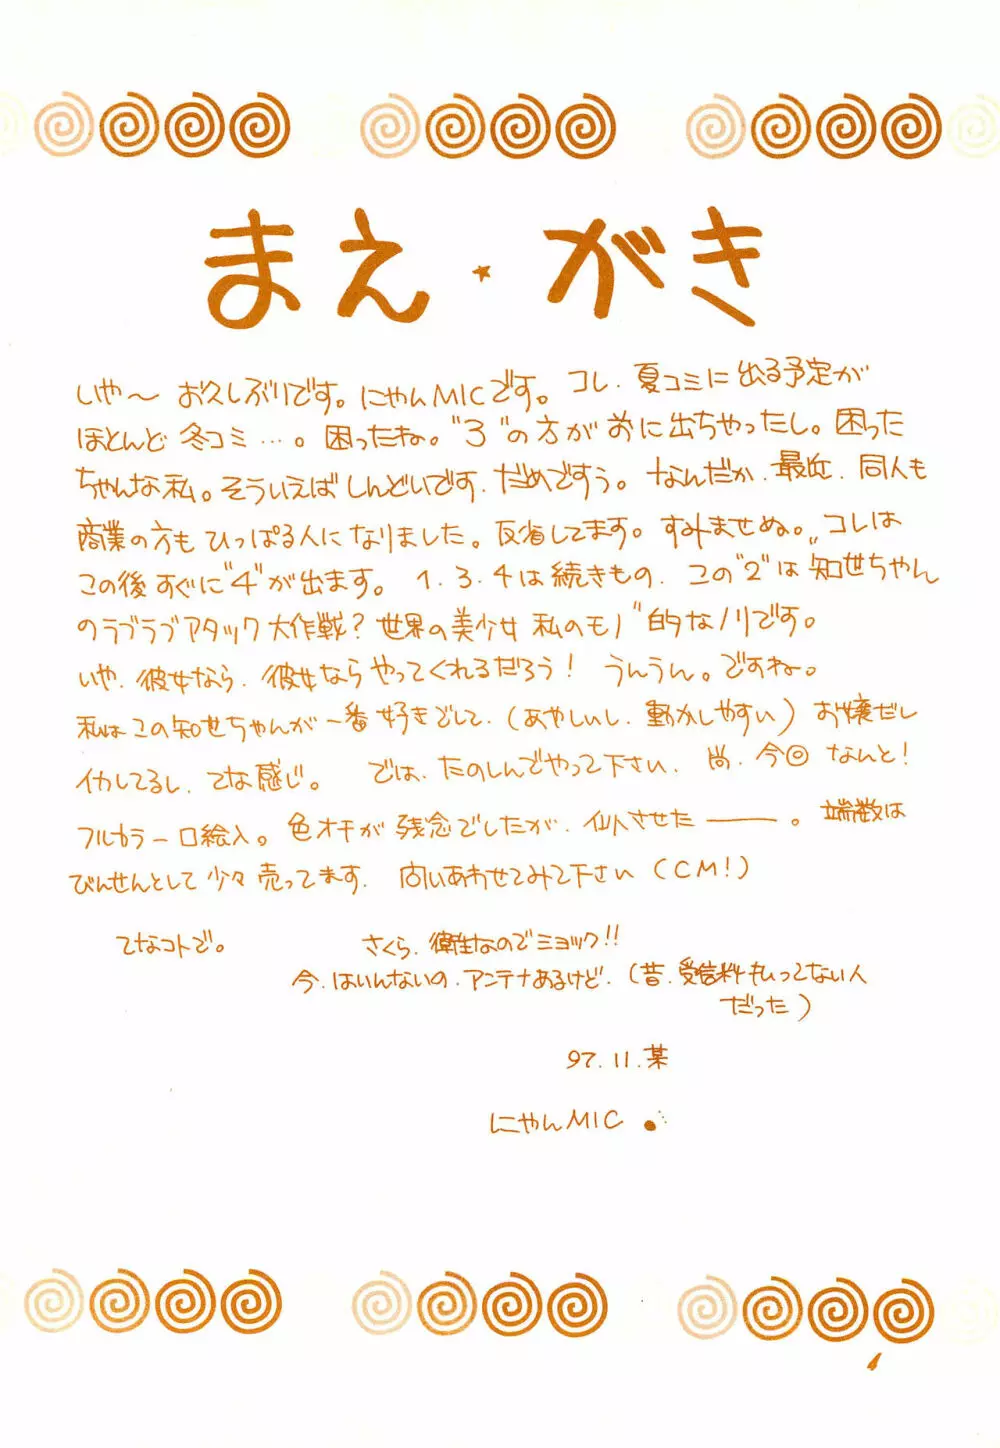 まえ☆がき
いや〜 お久しぶりです。にゃんMICです。コレ、夏コミに出る予定が
ほとんど 冬コミ…。困ったね。"3"の方が 前に出ちゃったし。困った
ちゃんな私。そういえば しんどいです、だめですぅ。なんだか、最近、同人も
商業の方も ひっぱる人に なりました。反省してます。すみませぬ。コレは
この後すぐに"4"が出ます。1.3.4は続きもの、この"2"は 知世ちゃん
のラブラブアタック大作戦?世界の美少女 私のモノ"的なノリです。
いや、彼女なら、彼女なら やってくれるだろう! うんうん。ですね。
私は この知世ちゃんが 一番 好きでして、(あやしいし、動かしやすい) お嬢だし
イカしてるし、てな感じ。 では、たのしんでやって下さい、尚、今回 なんと!
フルカラー口絵入。色オチが 残念でしたが、仙人させた――。端数は
びんせんとして 少々 売ってます、 問いあわせてみて下さい (CM!)
てなコトで。
さくら、衛生なのでミョック!!
今、はいんないの、アンテナあるけど、(昔、受信料もいってない人
だった)
97.11.某
にゃんMIC
1